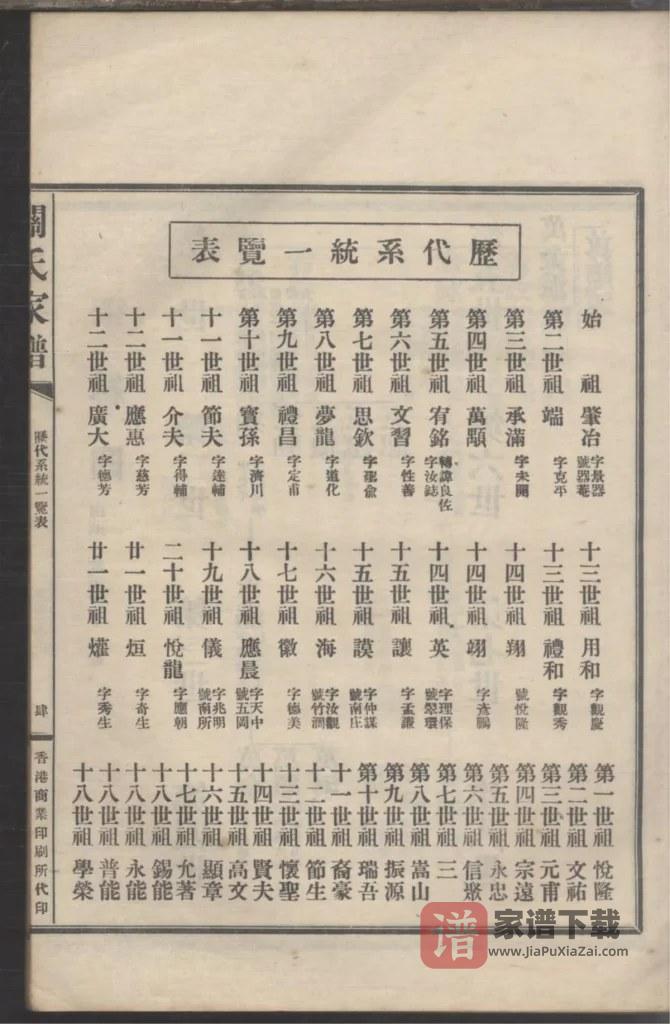 歷代系統一覽表
始祖 肇冶 字景器 號器菴
第二世祖 端 字克平
第三世祖 承滿 字未開
第四世祖 萬顒
第五世祖 宥銘 轉諱良佐 字汝誌
第六世祖 文習 字性善
第七世祖 思欽 字聖俞
第八世祖 夢龍 字道化
第九世祖 禮昌 字定甫
第十世祖 寶孫 字濟川
十一世祖 節夫 字達輔
十一世祖 介夫 字得輔
十二世祖 應惠 字慈芳
十二世祖 廣大 字德芳
十三世祖 用和 字觀慶
十三世祖 禮和 字觀秀
十四世祖 翔 號悅隆
十四世祖 翊 字彥鵬
十四世祖 英 字理保 號翠環
十五世祖 讓 字孟謙
十五世祖 謨 字仲謀 號南庄
十六世祖 海 字汝觀 號竹澗
十七世祖 徽 字德美
十八世祖 應晨 字天中 號五岡
十九世祖 儀 字兆明 號南所
二十世祖 悅龍 字應朝
廿一世祖 烜 字奇生
廿一世祖 爟 字秀生
第一世祖 悅隆
第二世祖 文祐
第三世祖 元甫
第四世祖 宗遠
第五世祖 永忠
第六世祖 信聚
第七世祖 三
第八世祖 嵩山
第九世祖 振源
第十世祖 瑞吾
十一世祖 裔豪
十二世祖 節生
十三世祖 懷聖
十四世祖 賢夫
十五世祖 高文
十六世祖 顯章
十七世祖 允著
十八世祖 錫能
十八世祖 永能
十八世祖 普能
十八世祖 學榮
關氏家譜
歷代系統一覽表
肆
香港商業印刷所代印
谱 家谱下载
www.JiaPuXiaZai.com